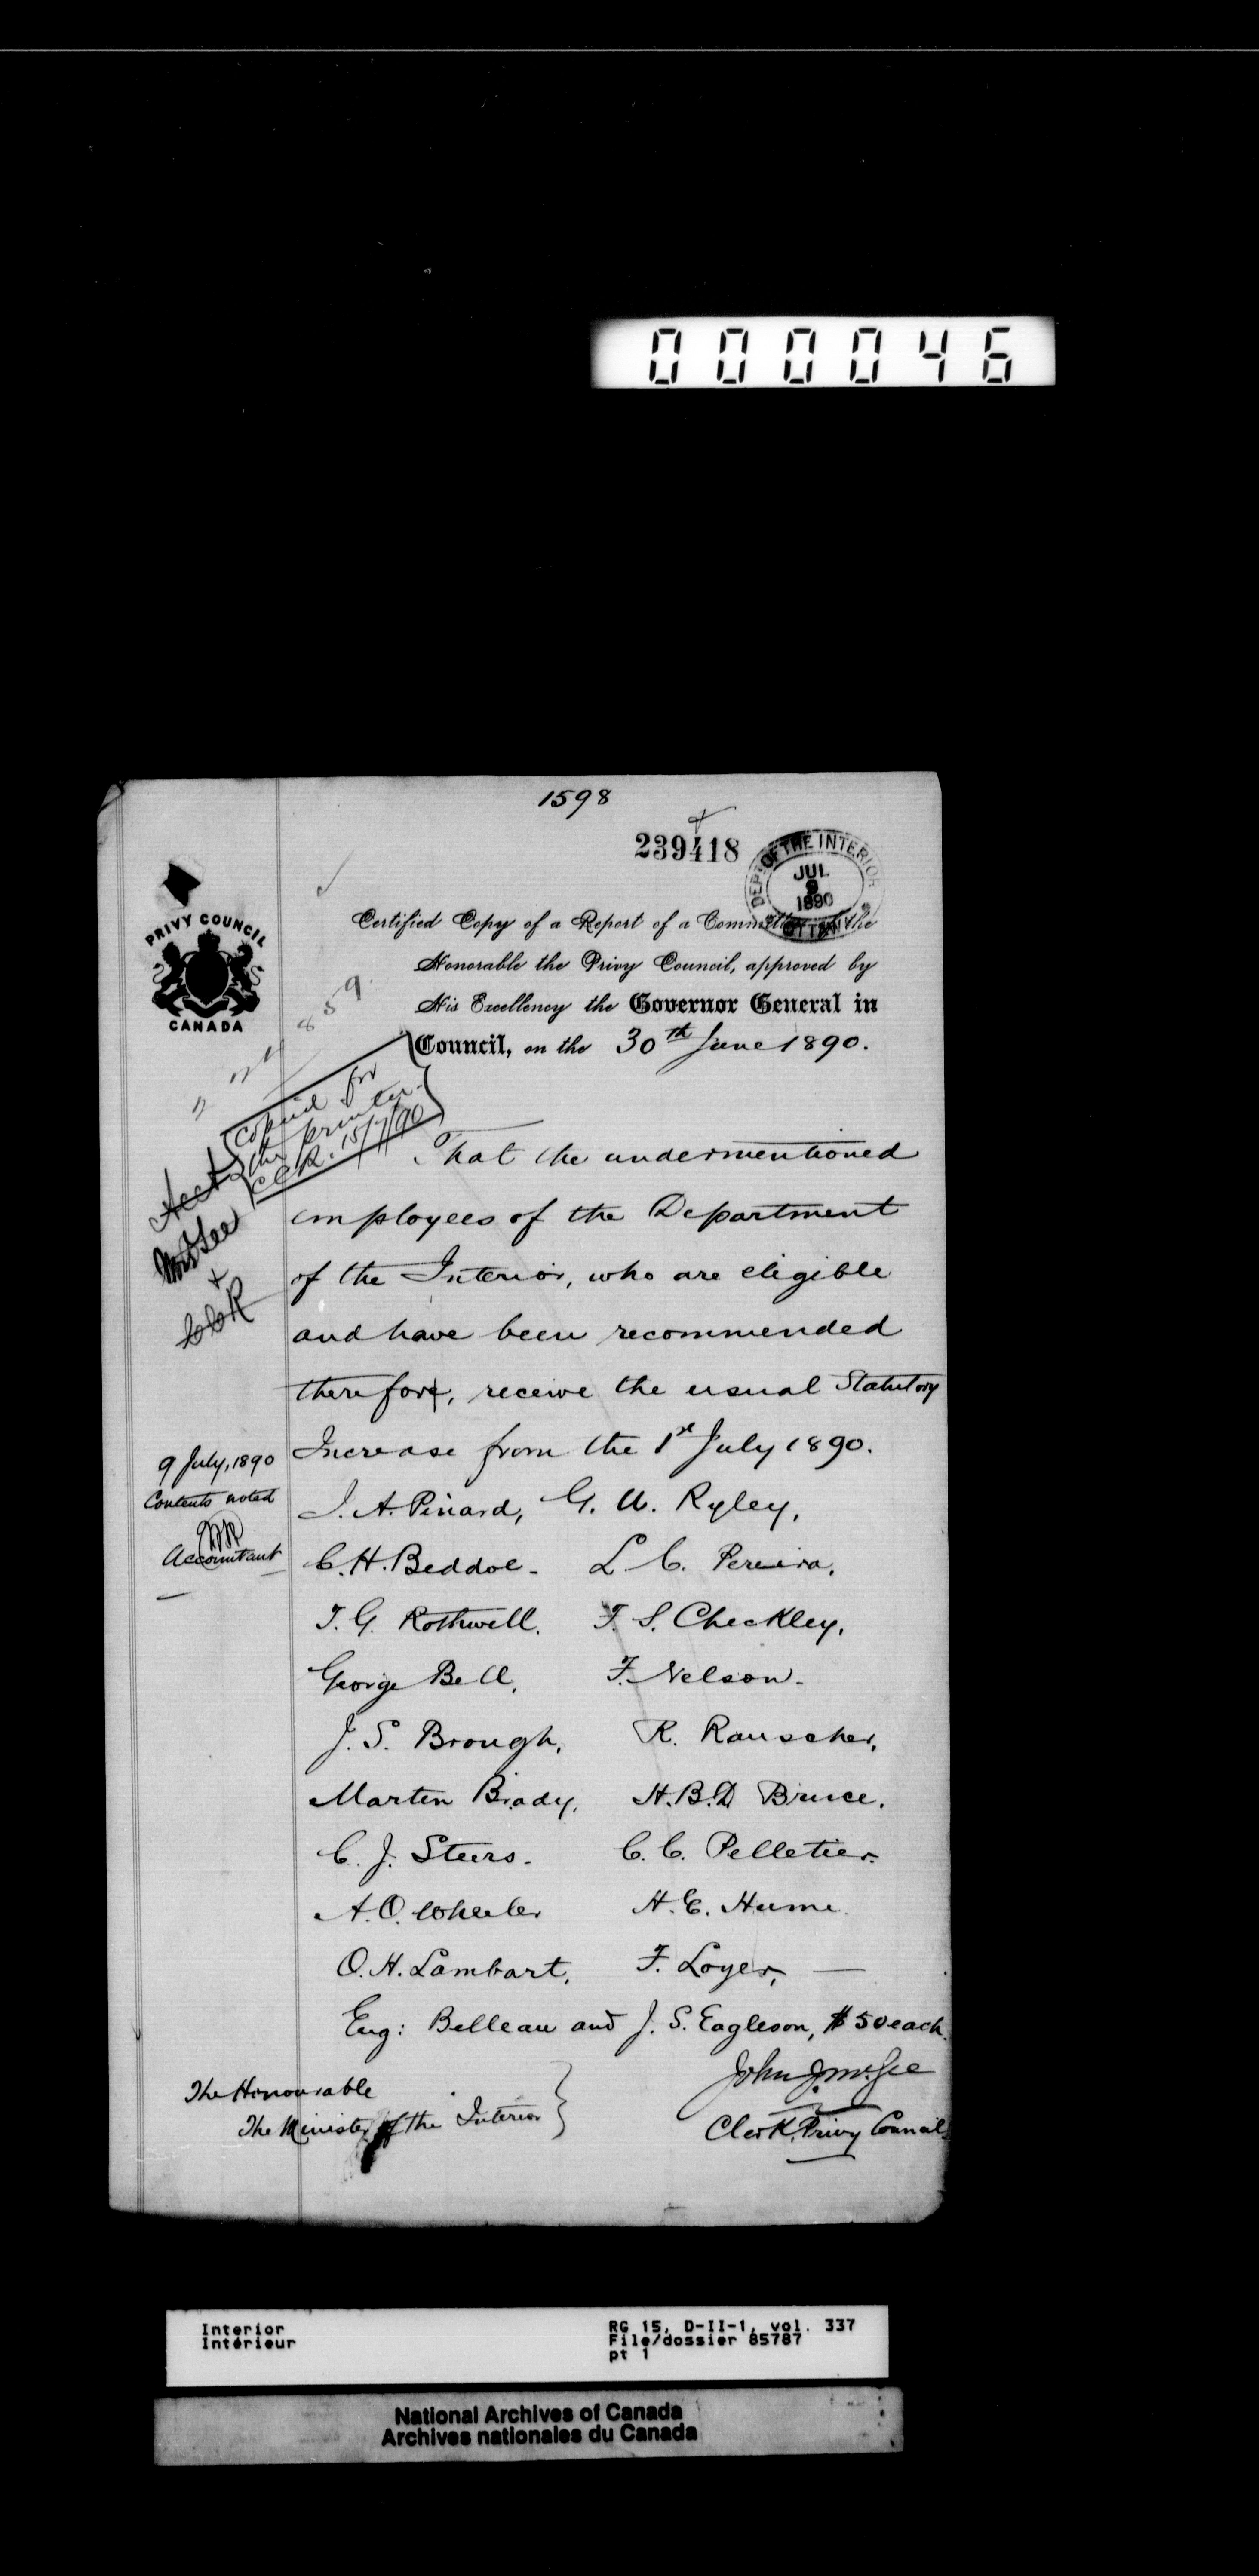 000046
1598
239418
DEPT OF THE INTERIOR
JUL
9
1890
OTTAWA
PRIVY COUNCIL
CANADA
Certified Copy of a Report of a Committee of the
Honorable the Privy Council, approved by
His Excellency the Governor General in
Council, on the 30th June 1890.
859
copied for
the printer
CCR. 15/7/90
Acct
CCR
That the undermentioned
employees of the Department
of the Interior, who are eligible
and have been recommended
therefor, receive the usual Statutory
Increase from the 1st July 1890.
9 July, 1890
Contents noted
Accountant
J. A. Pinard, G. U. Ryley,
C. H. Beddoe. L. C. Pereira,
T. G. Rothwell. F. S. Checkley,
George Bell, F. Nelson.
J. S. Brough, R. Rauscher,
Martin Brady, H. B. D Bruce,
C. J. Steers. C. C. Pelletier.
A. O. Wheeler H. E. Hume.
O. H. Lambart, F. Loyer, —
Eug: Belleau and J. S. Eagleson, $50 each.
John J. McGee
Clerk, Privy Council
The Honourable
The Minister of the Interior
Interior
Intérieur
RG 15, D-II-1, vol. 337
File/dossier 85787
pt 1
National Archives of Canada
Archives nationales du Canada